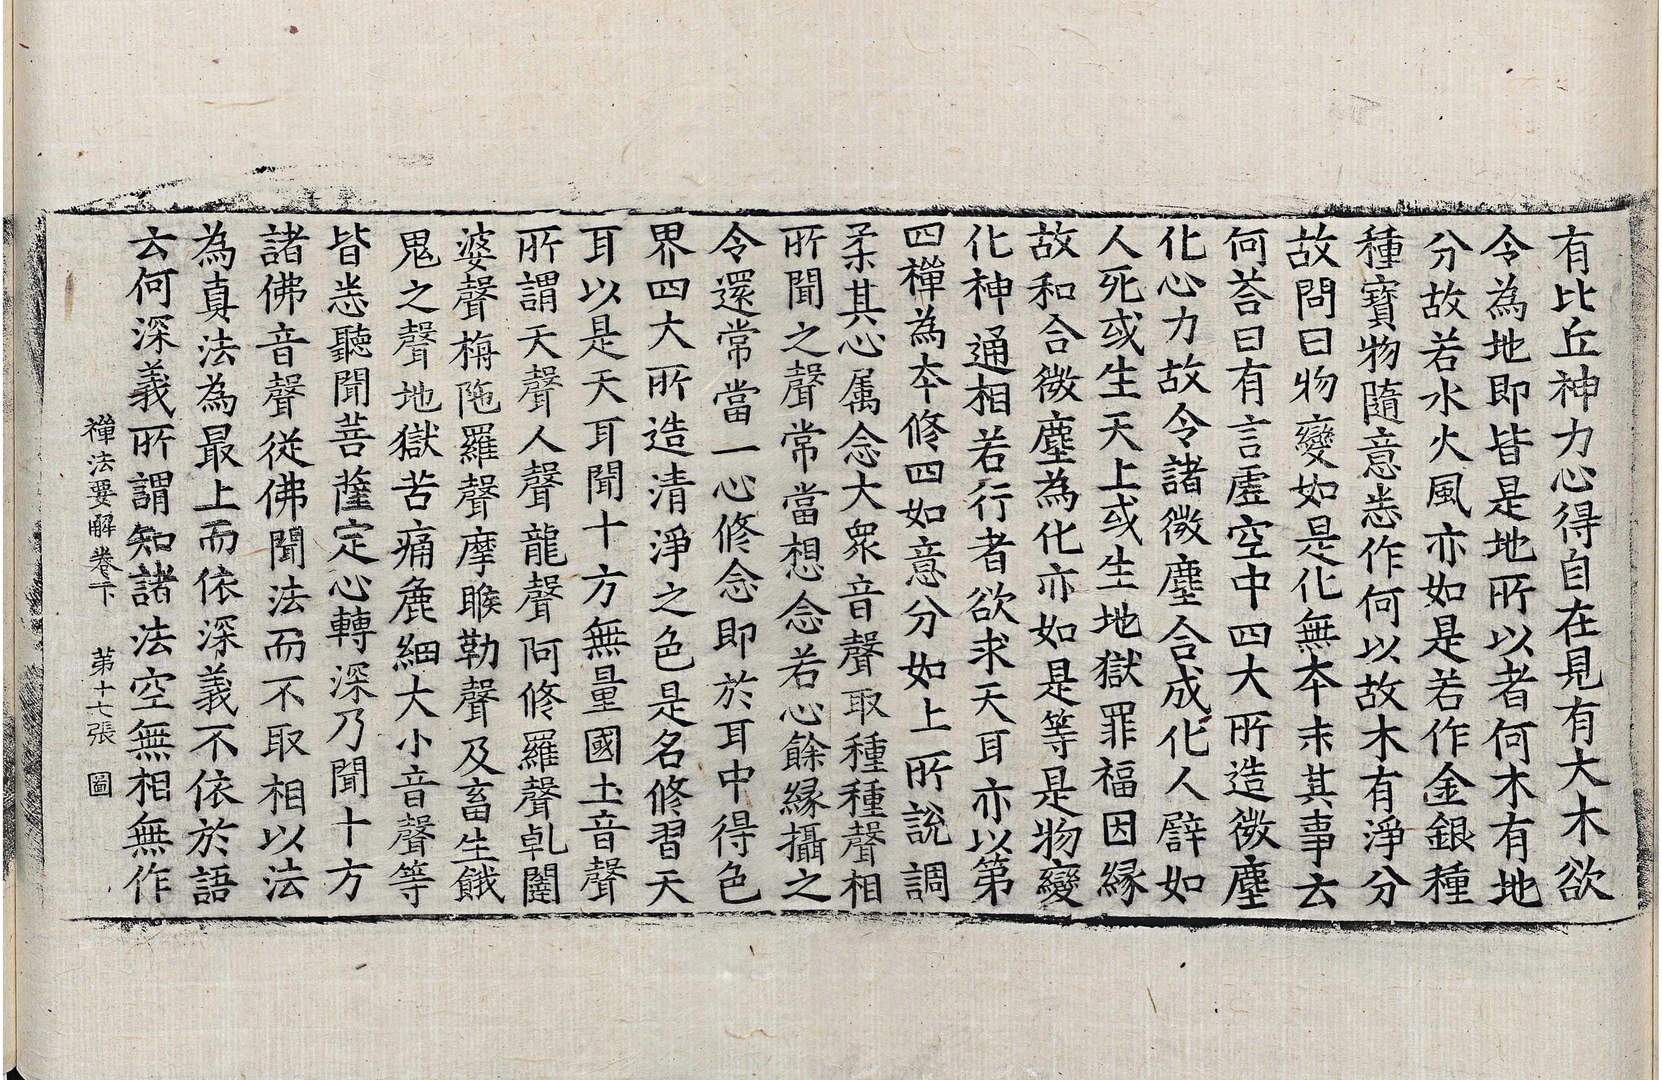 有比丘神力心得自在見有大木欲
令為地即皆是地所以者何木有地
分故若水火風亦如是若作金銀種
種寶物隨意悉作何以故木有淨分
故問曰物變如是化無本末其事云
何荅曰有言虛空中四大所造微塵
化心力故令諸微塵合成化人譬如
人死或生天上或生地獄罪福因緣
故和合微塵為化亦如是等是物變
化神通相若行者欲求天耳亦以第
四禪為本修四如意分如上所說調
柔其心属念大衆音聲取種種聲相
所聞之聲常當想念若心餘縁攝之
令還常當一心修念即於耳中得色
界四大所造清淨之色是名修習天
耳以是天耳聞十方無量國土音聲
所謂天聲人聲龍聲阿修羅聲乹闥
婆聲栴陁羅聲摩睺勒聲及畜生餓
鬼之聲地獄苦痛麁細大小音聲等
皆悉聽聞菩薩定心轉深乃聞十方
諸佛音聲從佛聞法而不取相以法
為真法為最上而依深義不依於語
云何深義所謂知諸法空無相無作
禪法要解卷下　第十七張　圖